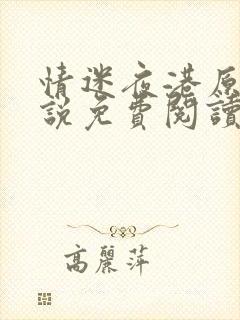 情迷夜港原
說免費閱讀
高麗萍